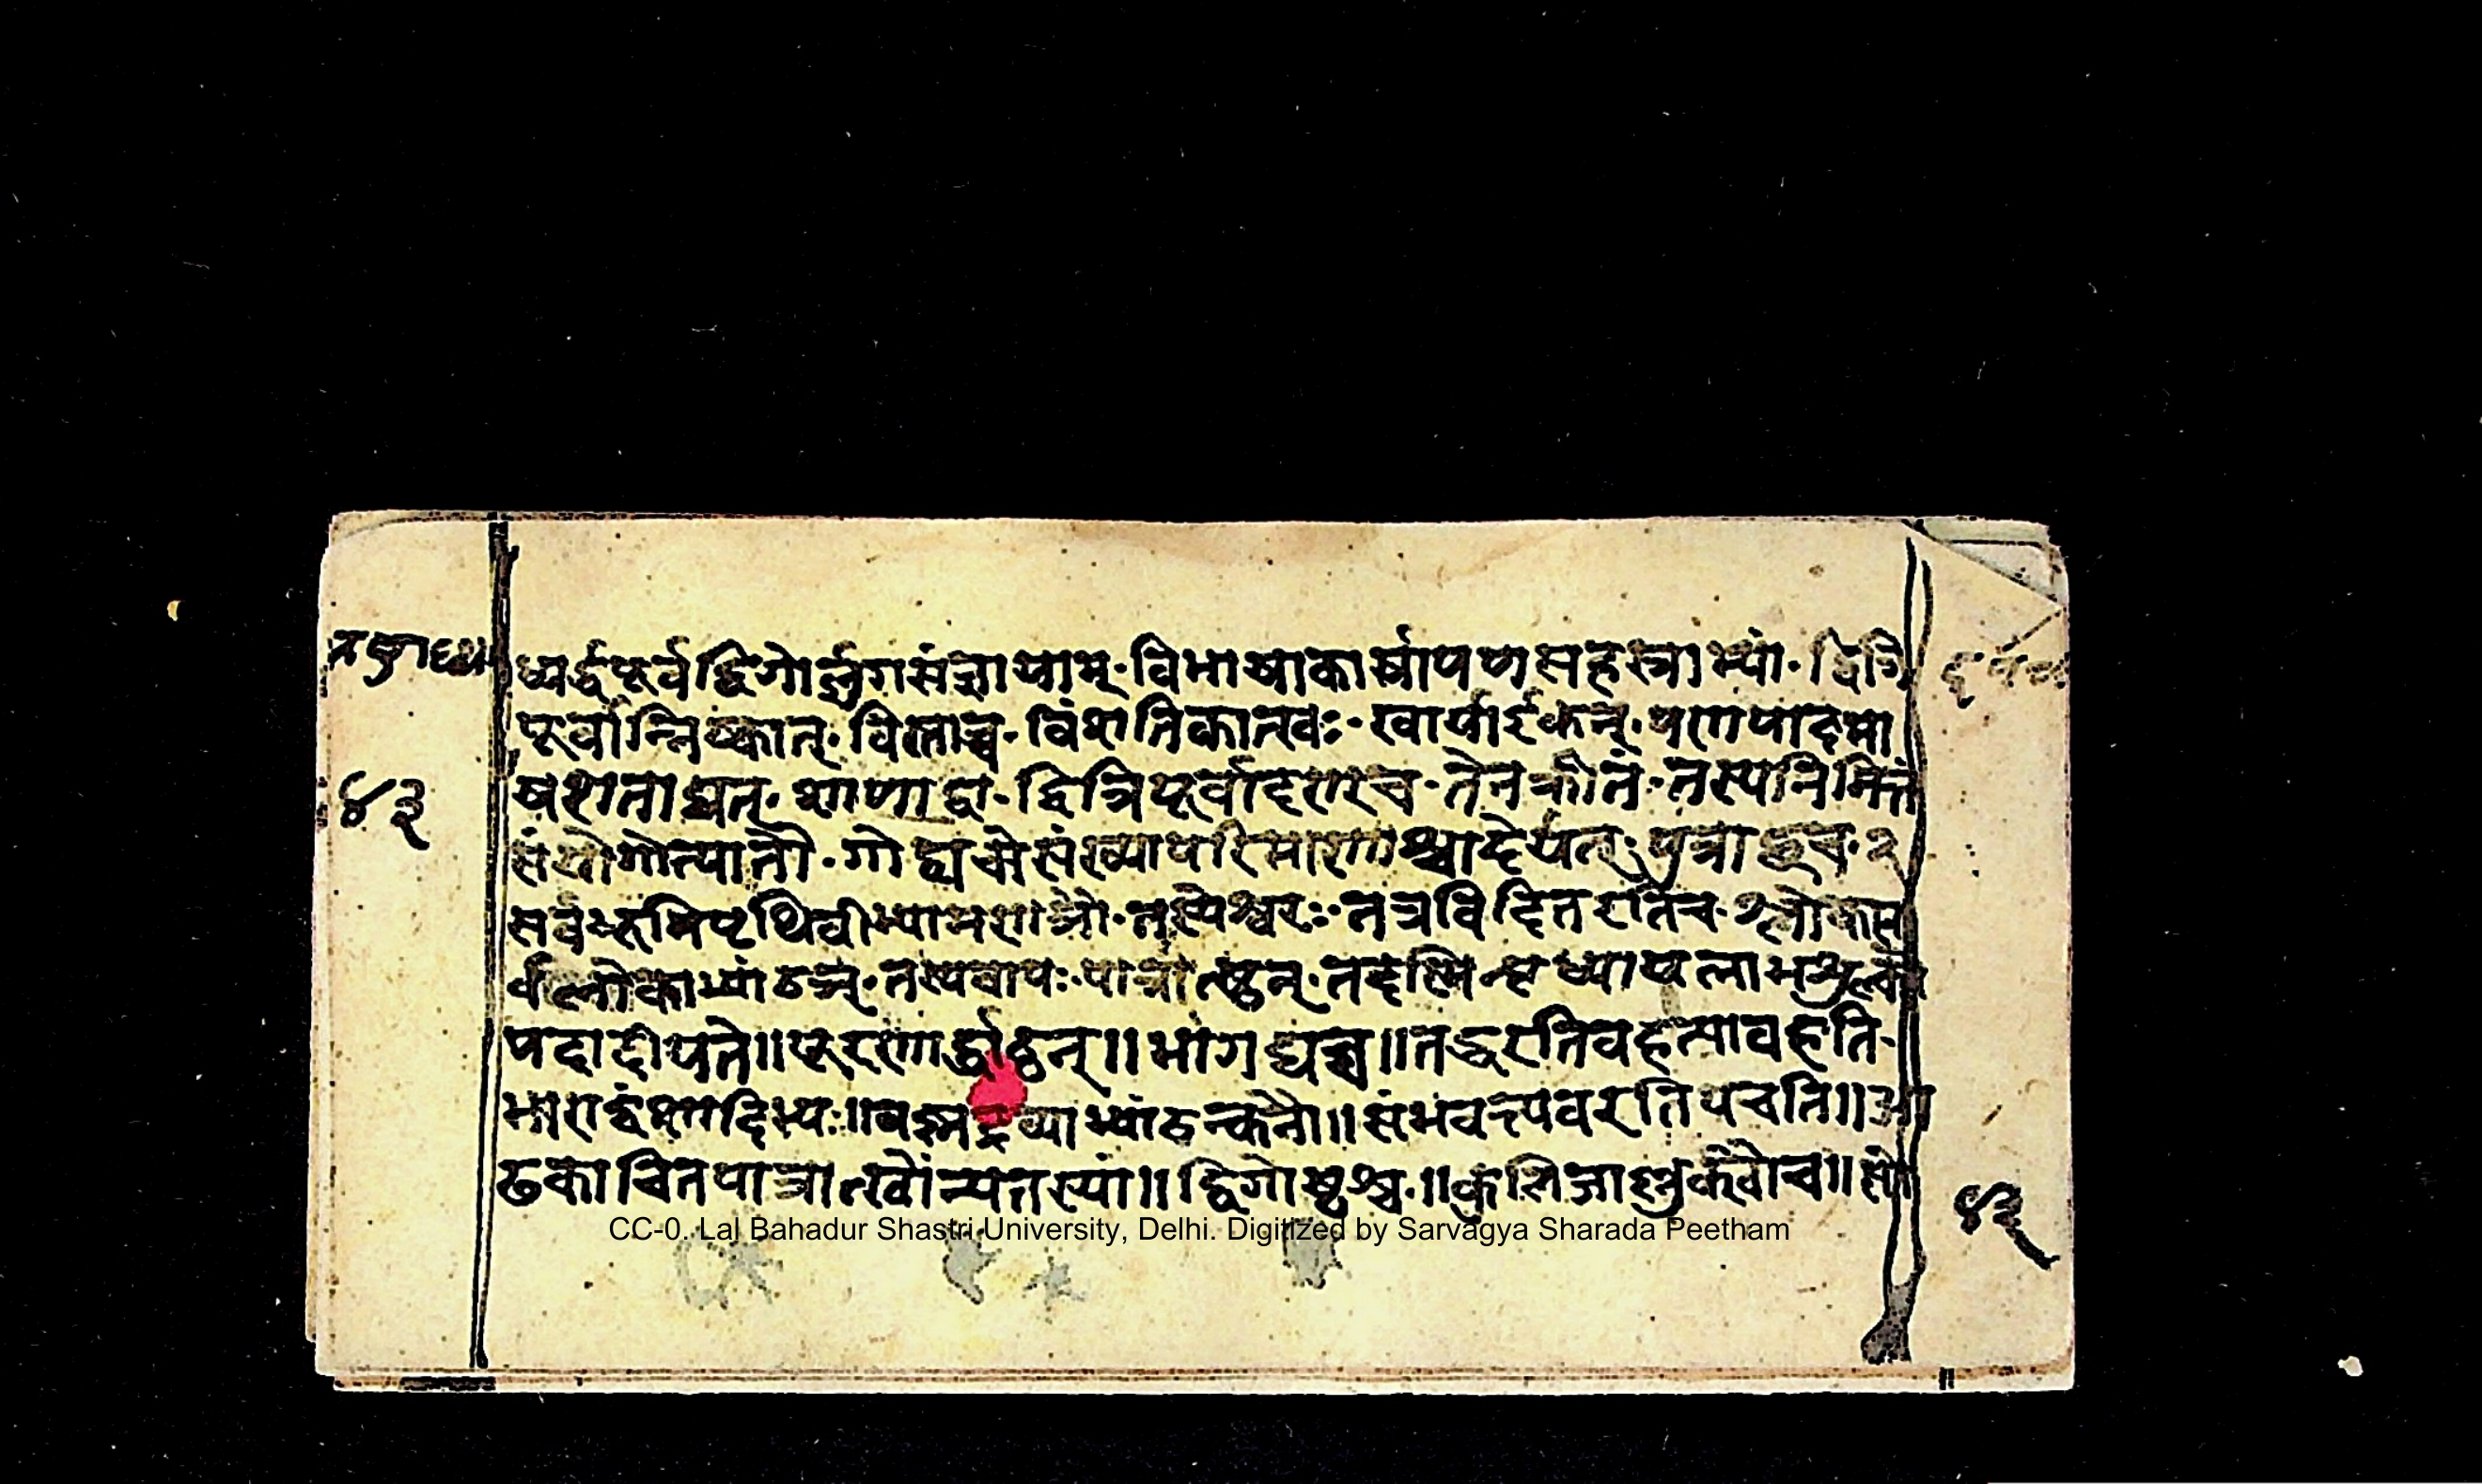 ध्यर्द्धपूर्वद्विगोर्लुगसंज्ञायाम्·विभाषाकार्षापणसहस्राभ्यां·द्वित्रि
पूर्वान्निष्कात्·विस्ताच्च·विंशतिकात्खः·खार्याईकन्·पणपादमा
षशताद्यत्·शाणाद्वा·द्वित्रिपूर्वादण्च·तेनक्रीतं·तस्यनिमित्तं
संयोगोत्पातौ·गोद्व्यचोसंख्यापरिमाणाश्वादेर्यत्·पुत्राच्छच·
सर्वभूमिपृथिवीभ्यामणञौ·तस्येश्वरः·तत्रविदितइतिच·लोकस
र्वलोकाभ्यांठञ्·तस्यवापः·पात्रात्ष्ठन्·तदस्मिन्वृध्यायलाभशुल्को
पदादीयते॥पूरणार्द्धाट्ठन्॥भागाद्यच्च॥तद्धरतिवहत्यावहति
भाराद्वंशादिभ्यः॥वस्नद्रव्याभ्यांठन्कनौ॥संभवत्यवहरतिपचति॥आ
ढकाचितपात्रात्खोन्यतरस्यां॥द्विगोष्ठंश्च॥कुलिजाल्लुक्खौच॥सो
४३
४३
CC-0. Lal Bahadur Shastri University, Delhi. Digitized by Sarvagya Sharada Peetham